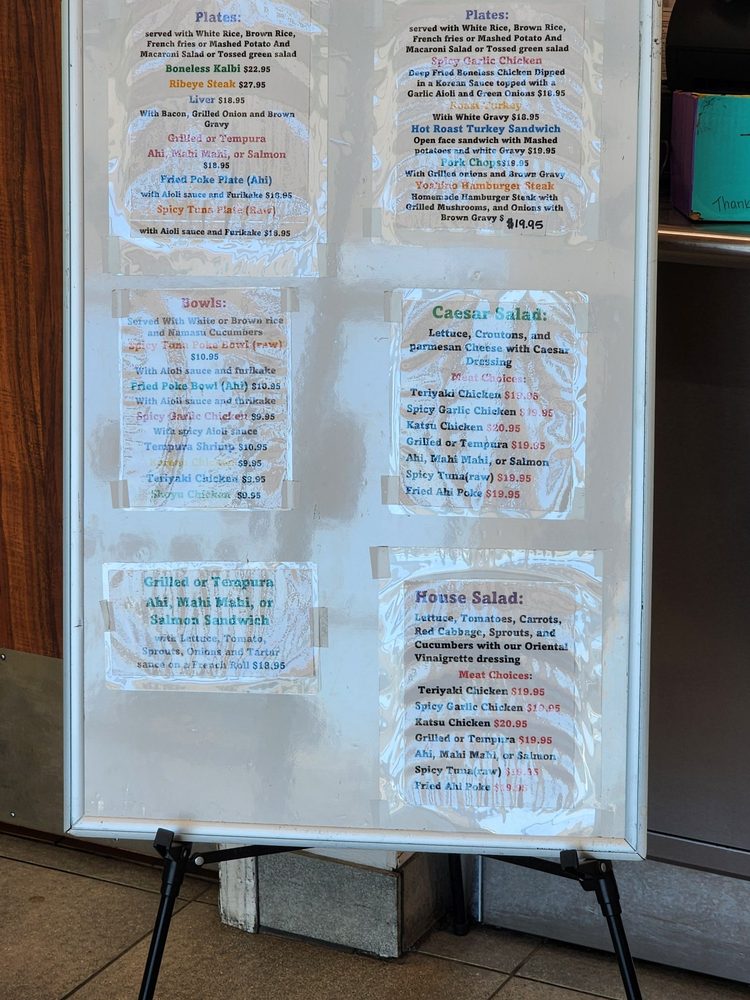 Plates:
served with White Rice, Brown Rice,
French fries or Mashed Potato And
Macaroni Salad or Tossed green salad
Boneless Kalbi $22.95
Ribeye Steak $27.95
Liver $18.95
With Bacon, Grilled Onion and Brown
Gravy
Grilled or Tempura
Ahi, Mahi Mahi, or Salmon
$18.95
Fried Poke Plate (Ahi)
with Aioli sauce and Furikake $18.95
Spicy Tuna Plate (Raw)
with Aioli sauce and Furikake $18.95
Plates:
served with White Rice, Brown Rice,
French fries or Mashed Potato And
Macaroni Salad or Tossed green salad
Spicy Garlic Chicken
Deep Fried Boneless Chicken Dipped
in a Korean Sauce topped with a
Garlic Aioli and Green Onions $18.95
Roast Turkey
With White Gravy $18.95
Hot Roast Turkey Sandwich
Open face sandwich with Mashed
potatoes and white Gravy $19.95
Pork Chops $19.95
With Grilled onions and Brown Gravy
Yoshino Hamburger Steak
Homemade Hamburger Steak with
Grilled Mushrooms, and Onions with
Brown Gravy $ $19.95
Bowls:
Served With White or Brown rice
and Namasu Cucumbers
Spicy Tuna Poke Bowl (raw)
$10.95
With Aioli sauce and furikake
Fried Poke Bowl (Ahi) $10.95
With Aioli sauce and furikake
Spicy Garlic Chicken $9.95
With spicy Aioli sauce
Tempura Shrimp $10.95
Chicken $9.95
Teriyaki Chicken $9.95
Shoyu Chicken $9.95
Caesar Salad:
Lettuce, Croutons, and
parmesan Cheese with Caesar
Dressing
Meat Choices:
Teriyaki Chicken $19.95
Spicy Garlic Chicken $19.95
Katsu Chicken $20.95
Grilled or Tempura $19.95
Ahi, Mahi Mahi, or Salmon
Spicy Tuna(raw) $19.95
Fried Ahi Poke $19.95
Grilled or Tempura
Ahi, Mahi Mahi, or
Salmon Sandwich
with Lettuce, Tomato,
Sprouts, Onions and Tartar
sauce on a French Roll $18.95
House Salad:
Lettuce, Tomatoes, Carrots,
Red Cabbage, Sprouts, and
Cucumbers with our Oriental
Vinaigrette dressing
Meat Choices:
Teriyaki Chicken $19.95
Spicy Garlic Chicken $19.95
Katsu Chicken $20.95
Grilled or Tempura $19.95
Ahi, Mahi Mahi, or Salmon
Spicy Tuna(raw) $19.95
Fried Ahi Poke $19.95
Thank